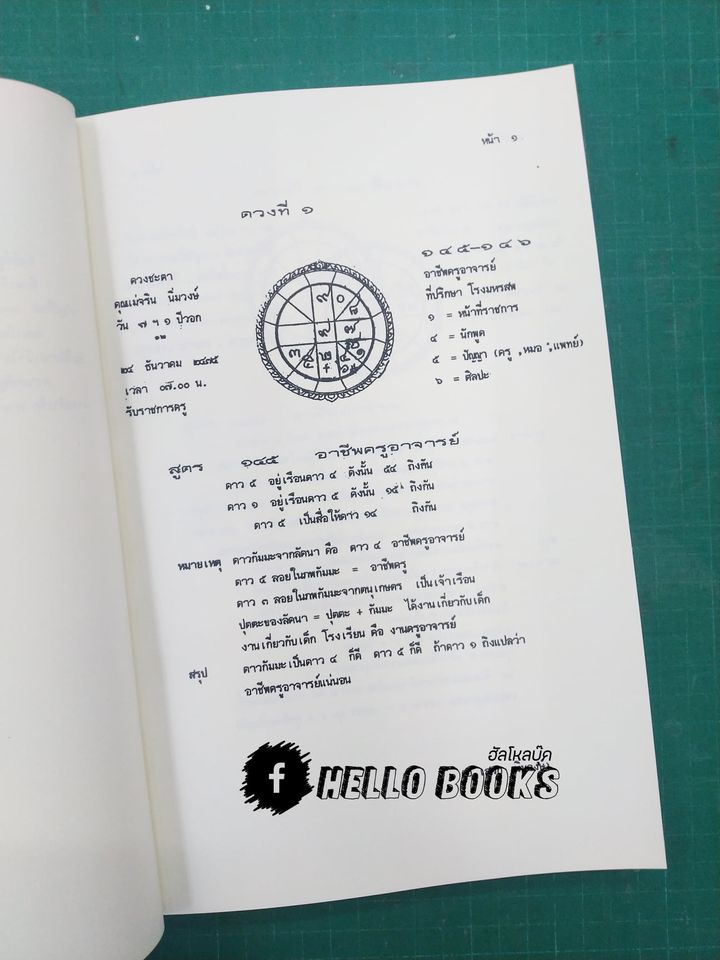 หน้า ๑
ดวงที่ ๑
ดวงชะตา
คุณแม่จริน นิ่มวงษ์
วัน ๗ ฯ ๑ ปีวอก
๑๒
๒๔ ธันวาคม ๒๔๗๕
เวลา ๐๗.๐๐ น.
รับราชการครู
๑ ๔ ๕–๑ ๔ ๖
อาชีพครูอาจารย์
ที่ปรึกษา โรงมหรสพ
๑ = หน้าที่ราชการ
๔ = นักพูด
๕ = ปัญญา (ครู ,หมอ ,แพทย์)
๖ = ศิลปะ
สูตร ๑๔๕ อาชีพครูอาจารย์
ดาว ๕ อยู่เรือนดาว ๔ ดังนั้น ๕๔ ถึงกัน
ดาว ๑ อยู่เรือนดาว ๕ ดังนั้น ๑๕ ถึงกัน
ดาว ๕ เป็นสื่อให้ดาว ๑๔ ถึงกัน
หมายเหตุ ดาวกัมมะจากลัคนา คือ ดาว ๔ อาชีพครูอาจารย์
ดาว ๕ ลอยในภพกัมมะ = อาชีพครู
ดาว ๓ ลอยในภพกัมมะจากตนุเกษตร เป็นเจ้าเรือน
ปุตตะของลัคนา = ปุตตะ + กัมมะ ได้งานเกี่ยวกับเด็ก
งานเกี่ยวกับเด็ก โรงเรียน คือ งานครูอาจารย์
สรุป ดาวกัมมะเป็นดาว ๔ ก็ดี ดาว ๕ ก็ดี ถ้าดาว ๑ ถึงแปลว่า
อาชีพครูอาจารย์แน่นอน
ฮัลโหลบุ๊ค
f HELLO BOOKS